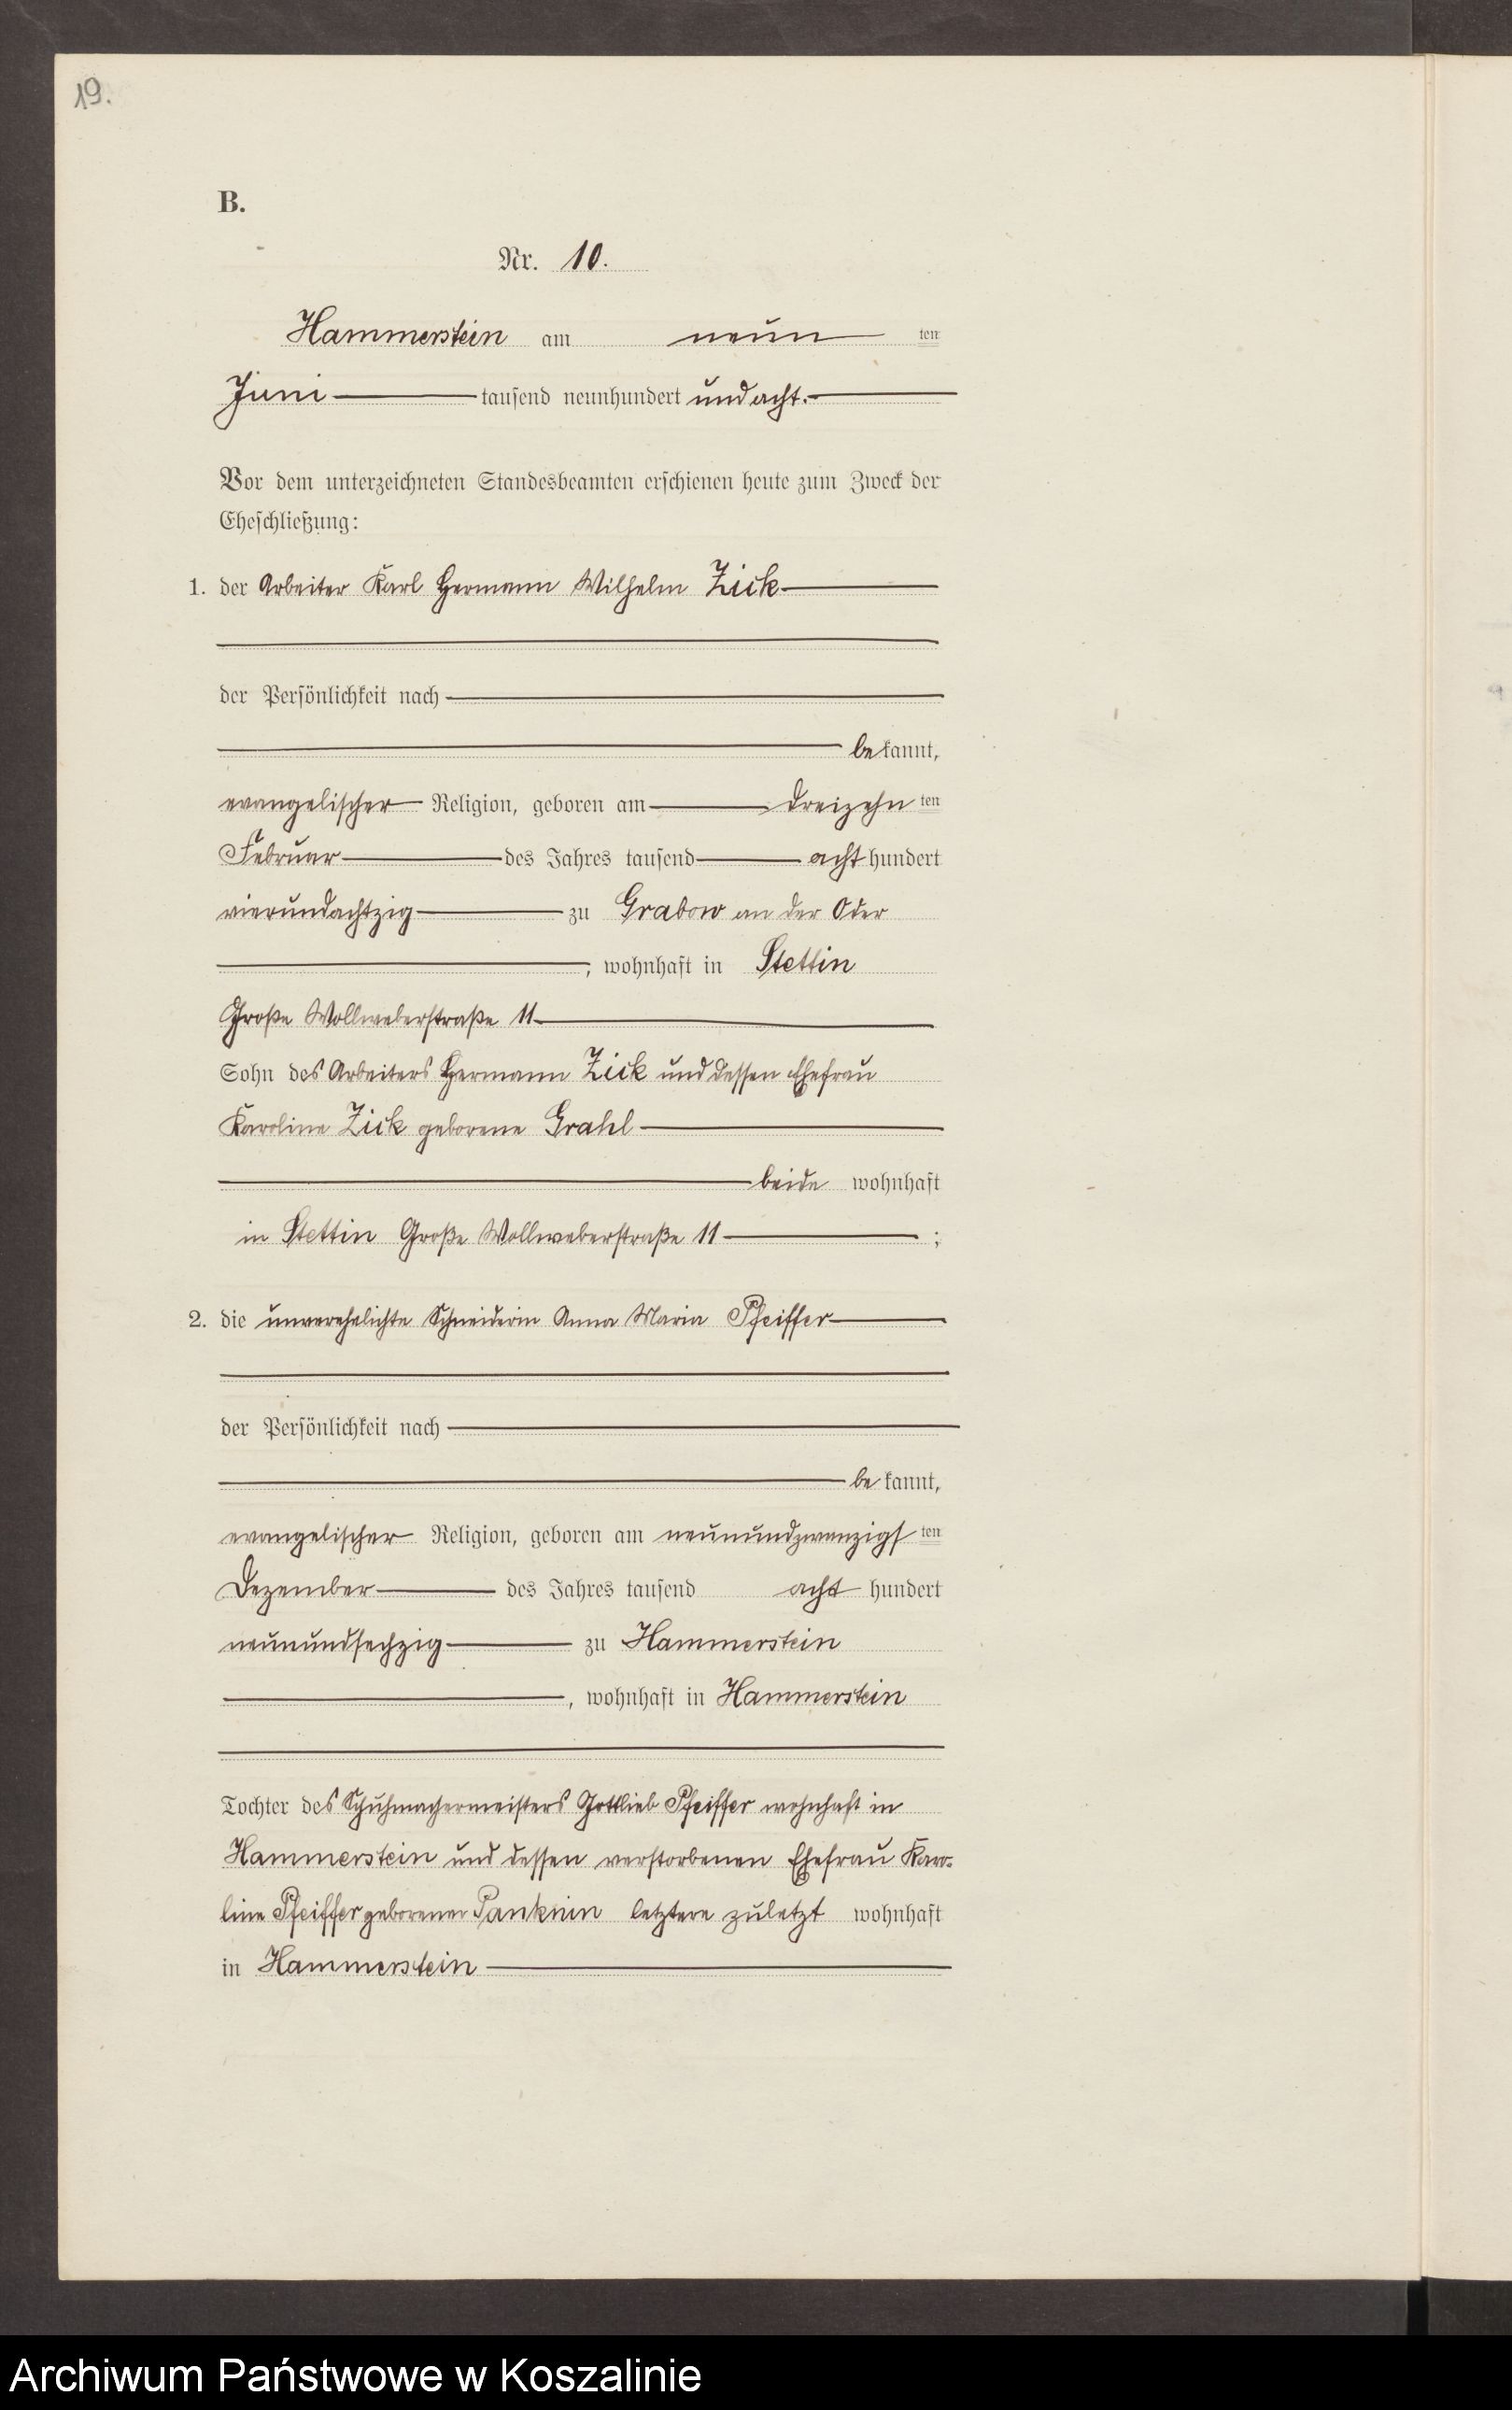 19.
B.
Nr. 10.
Hammerstein am neun ten
Juni tausend neunhundert und acht.
Vor dem unterzeichneten Standesbeamten erschienen heute zum Zweck der
Eheschließung:
1. der Arbeiter Karl Hermann Wilhelm Zick
der Persönlichkeit nach
be kannt,
evangelischer Religion, geboren am dreizehn ten
Februar des Jahres tausend acht hundert
vierundachtzig zu Grabow an der Oder
, wohnhaft in Stettin
Große Wollweberstraße 11
Sohn des Arbeiters Hermann Zick und dessen Ehefrau
Karoline Zick geborene Grahl
beide wohnhaft
in Stettin Große Wollweberstraße 11 ;
2. die unverehelichte Schneiderin Anna Maria Pfeiffer
der Persönlichkeit nach
be kannt,
evangelischer Religion, geboren am neunundzwanzigs ten
Dezember des Jahres tausend acht hundert
neunundsechzig zu Hammerstein
, wohnhaft in Hammerstein
Tochter des Schuhmachermeisters Gottlieb Pfeiffer wohnhaft in
Hammerstein und dessen verstorbenen Ehefrau Karo-
line Pfeiffer geborener Panknin letztere zuletzt wohnhaft
in Hammerstein
Archiwum Państwowe w Koszalinie